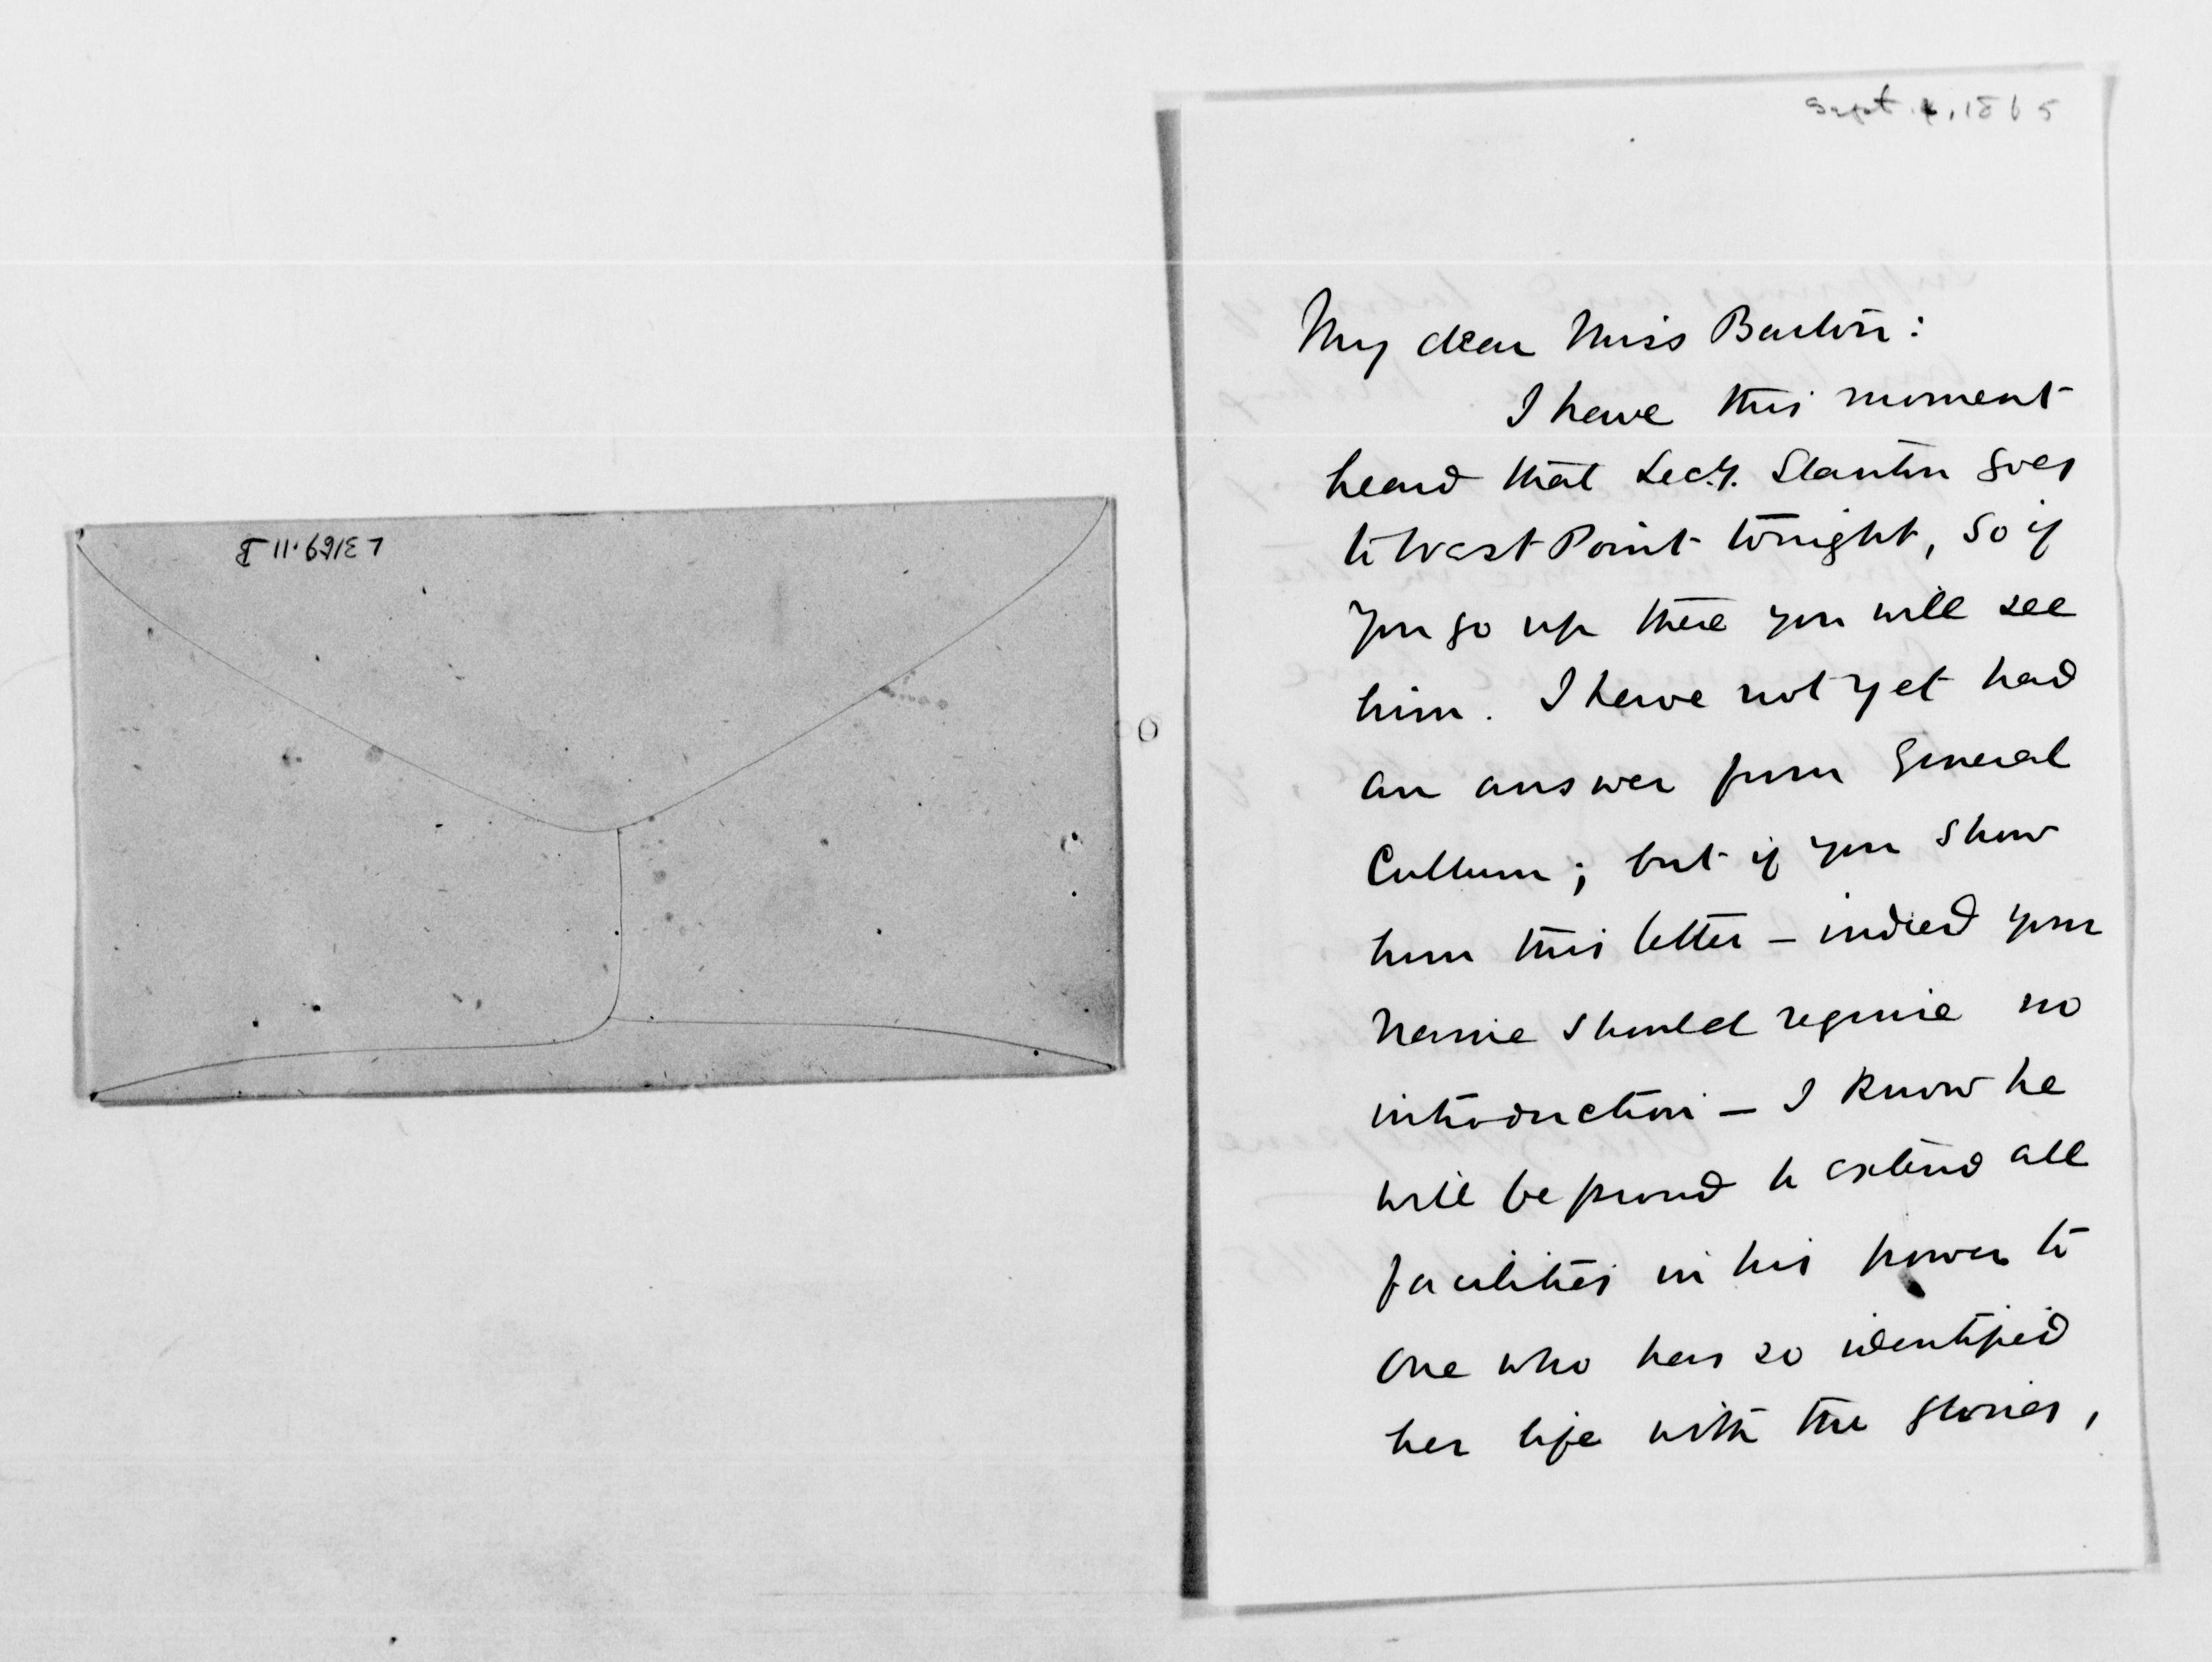 L3169.11 B
Sept. 4, 1865
My dear Miss Barton:
I have this moment
heard that Secy. Stanton goes
to West Point tonight, so if
you go up there you will see
him. I have not yet had
an answer from General
Cullum; but if you show
him this letter — indeed your
name should require no
introduction — I know he
will be proud to extend all
facilities in his power to
one who has so identified
her life with the glories,